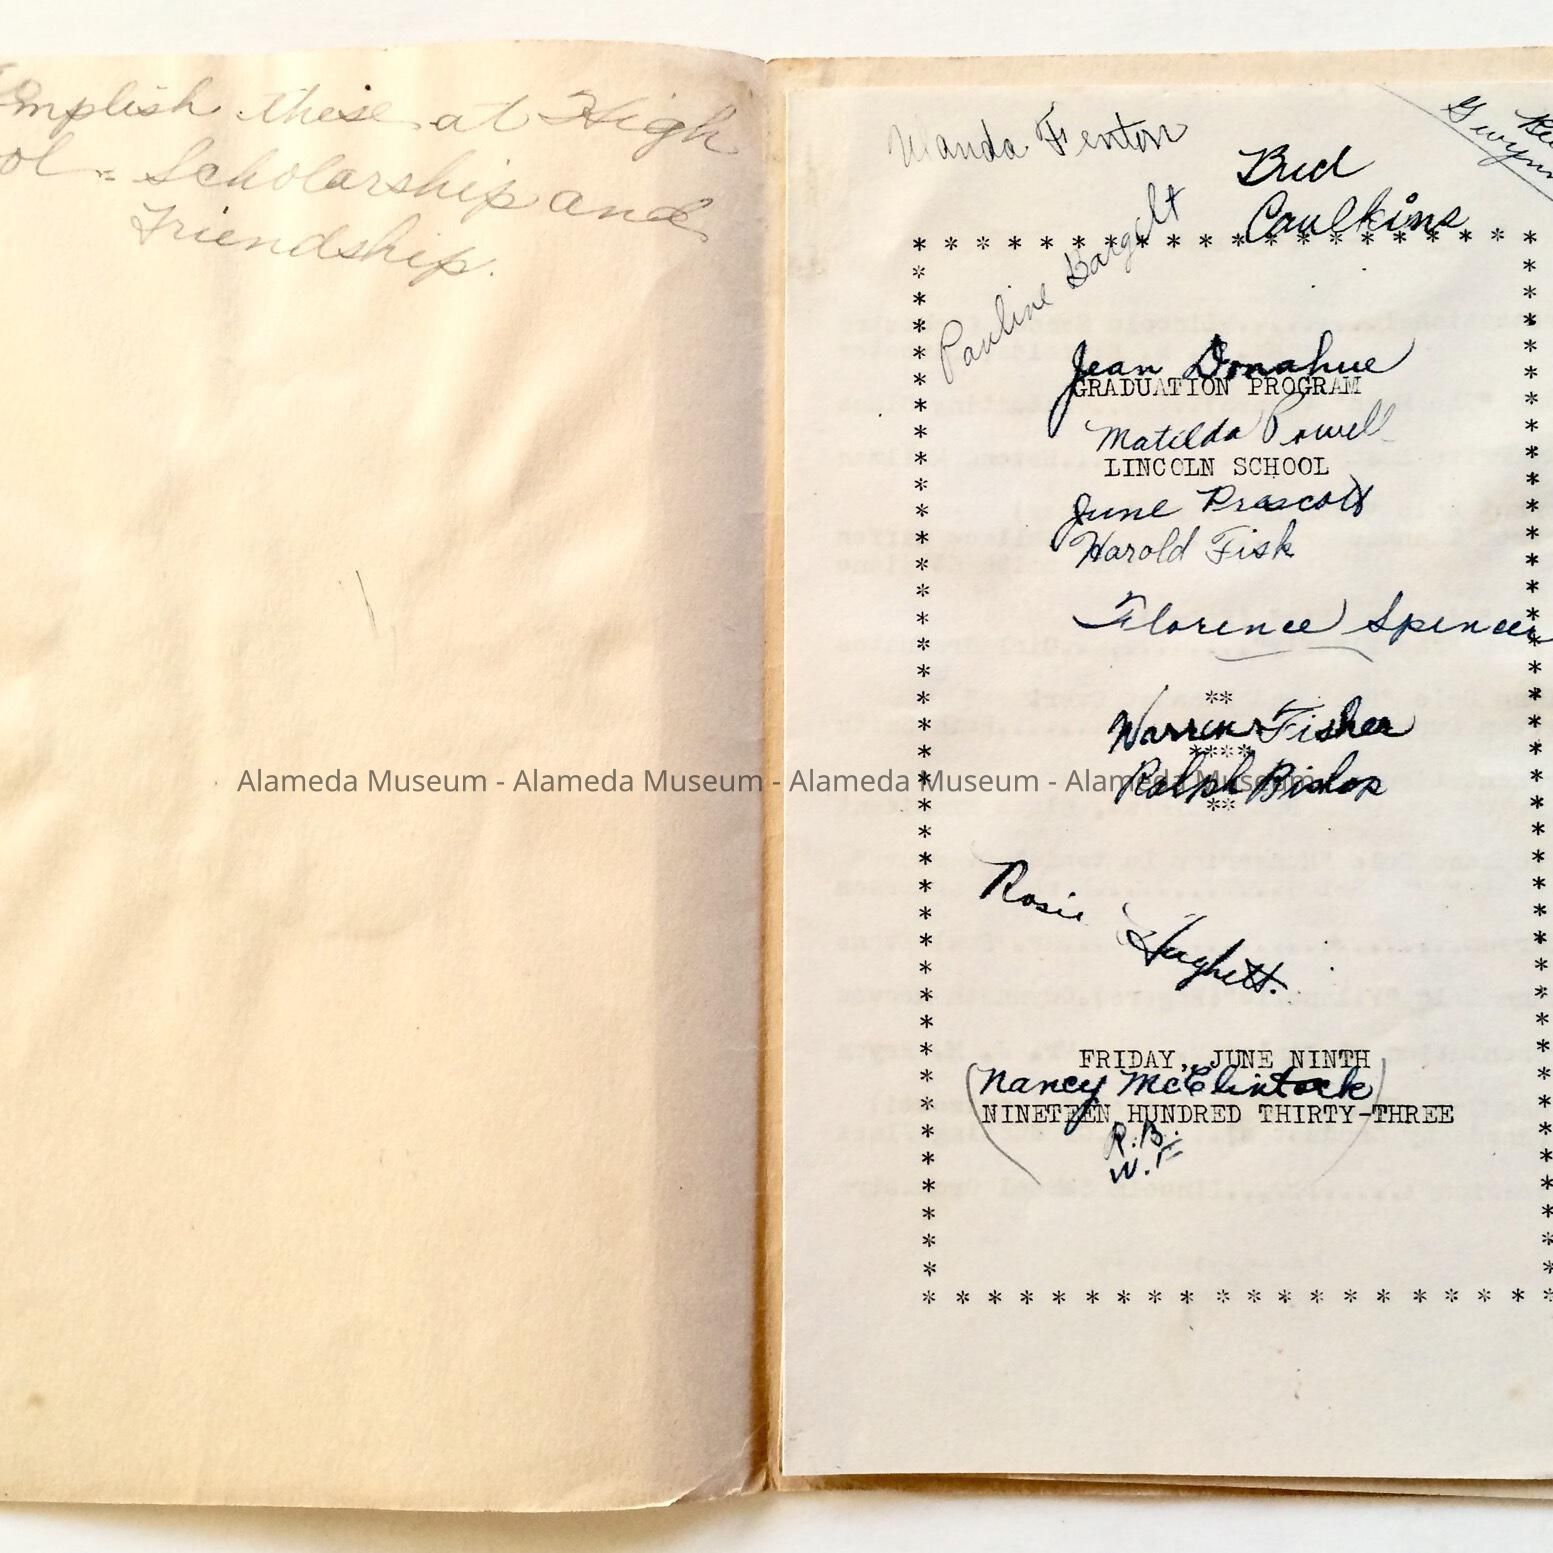 these at High
Scholarship and
Friendship.
Wanda Fenton
Bud
Caulkins
Gwynn
Pauline Bargelt
Jean Donahue
GRADUATION PROGRAM
Matilda Powell
LINCOLN SCHOOL
June Prascott
Harold Fisk
Florence Spencer
**
Warren Fisher
****
Alameda Museum - Alameda Museum - Alameda Museum - Alameda Museum
Ralph Bishop
**
Rosie Hughett.
FRIDAY, JUNE NINTH
(Nancy McClintock)
NINETEEN HUNDRED THIRTY-THREE
R.B.
W.F.